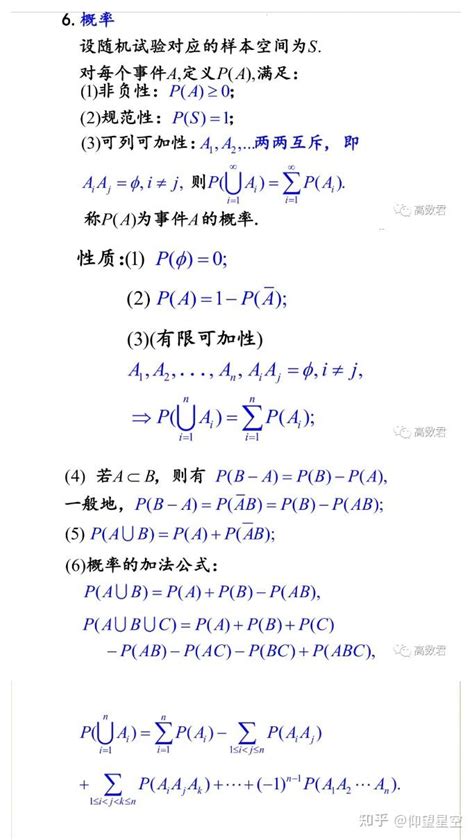 6. 概率
设随机试验对应的样本空间为S.
对每个事件A,定义P(A),满足：
(1)非负性：P(A) ≥ 0;
(2)规范性：P(S) = 1;
(3)可列可加性：A₁, A₂,...两两互斥，即
AᵢAⱼ = ϕ, i ≠ j, 则P(⋃_{i=1}^{∞} Aᵢ) = ∑_{i=1}^{∞} P(Aᵢ).
高数君
称P(A)为事件A的概率.
性质:(1) P(ϕ) = 0;
(2) P(A) = 1 − P(A̅);
(3)(有限可加性)
A₁, A₂, . . . , Aₙ, AᵢAⱼ = ϕ, i ≠ j,
⇒ P(⋃_{i=1}^{n} Aᵢ) = ∑_{i=1}^{n} P(Aᵢ);
高数君
(4) 若A ⊂ B，则有 P(B − A) = P(B) − P(A),
一般地，P(B − A) = P(A̅B) = P(B) − P(AB);
(5) P(A⋃B) = P(A) + P(A̅B);
(6)概率的加法公式：
P(A⋃B) = P(A) + P(B) − P(AB),
P(A⋃B⋃C) = P(A) + P(B) + P(C)
− P(AB) − P(AC) − P(BC) + P(ABC),
高数君
P(⋃_{i=1}^{n} Aᵢ) = ∑_{i=1}^{n} P(Aᵢ) − ∑_{1≤i<j≤n} P(AᵢAⱼ)
+ ∑_{1≤i<j<k≤n} P(AᵢAⱼAₖ) + ⋯ + (−1)ⁿ⁻¹ P(A₁A₂ ⋯ Aₙ).
知乎 @仰望星空